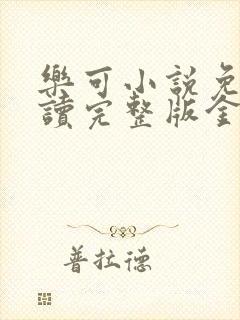 樂可小說免
讀完整版全
普拉德